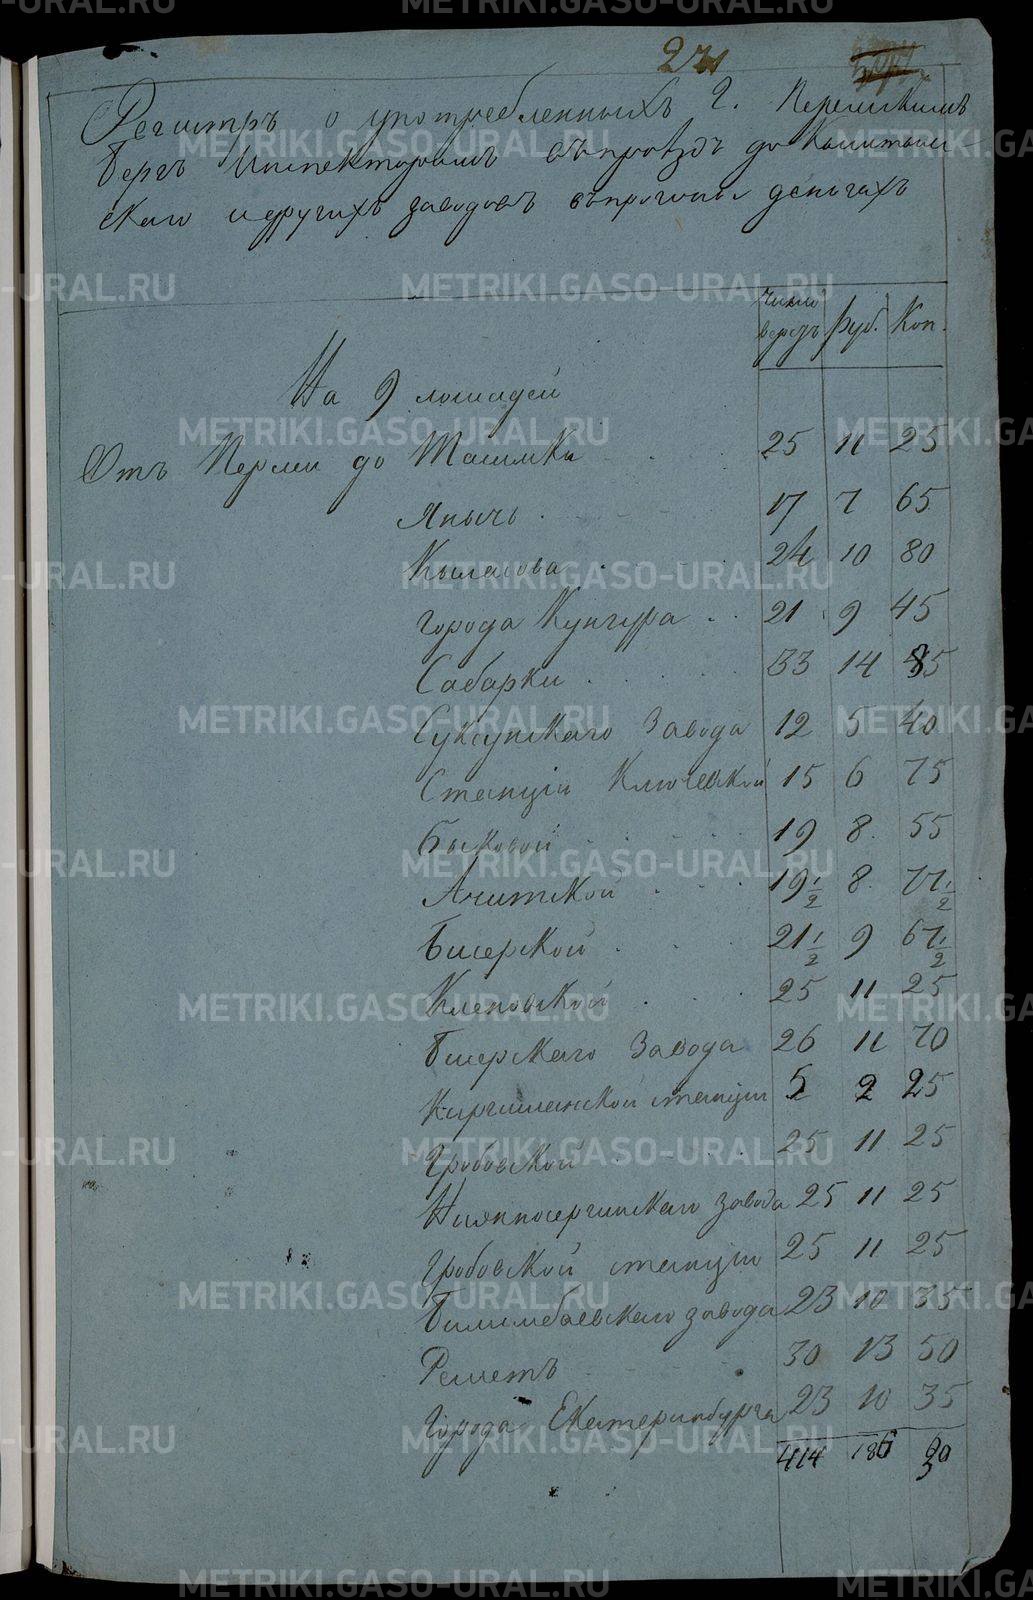 271
Регистръ о употребленныхъ Г. Пермскимъ
Бергъ Инспекторомъ въ проѣздъ до
скаго и другихъ заводовъ въ прогоны деньгахъ
число верстъ Руб. Коп.
На 9 лошадей
Отъ Перми до Таимки 25 11 25
Янычь 17 7 65
Кыласова 24 10 80
города Кунгура 21 9 45
Сабарки 33 14 85
Суксунскаго Завода 12 5 40
Станціи Ключевской 15 6 75
Быковой 19 8 55
Ачитской 19 1/2 8 77 1/2
Бисерской 21 1/2 9 67 1/2
Кленовской 25 11 25
Бисерскаго Завода 26 11 70
Киргишанской станціи 5 2 25
Гробовской 25 11 25
Нижнесергинскаго завода 25 11 25
Гробовской станціи 25 11 25
Билимбаевскаго завода 23 10 35
Решетъ 30 13 50
Города Екатеринбурга 23 10 35
414 186 30
METRIKI.GASO-URAL.RU